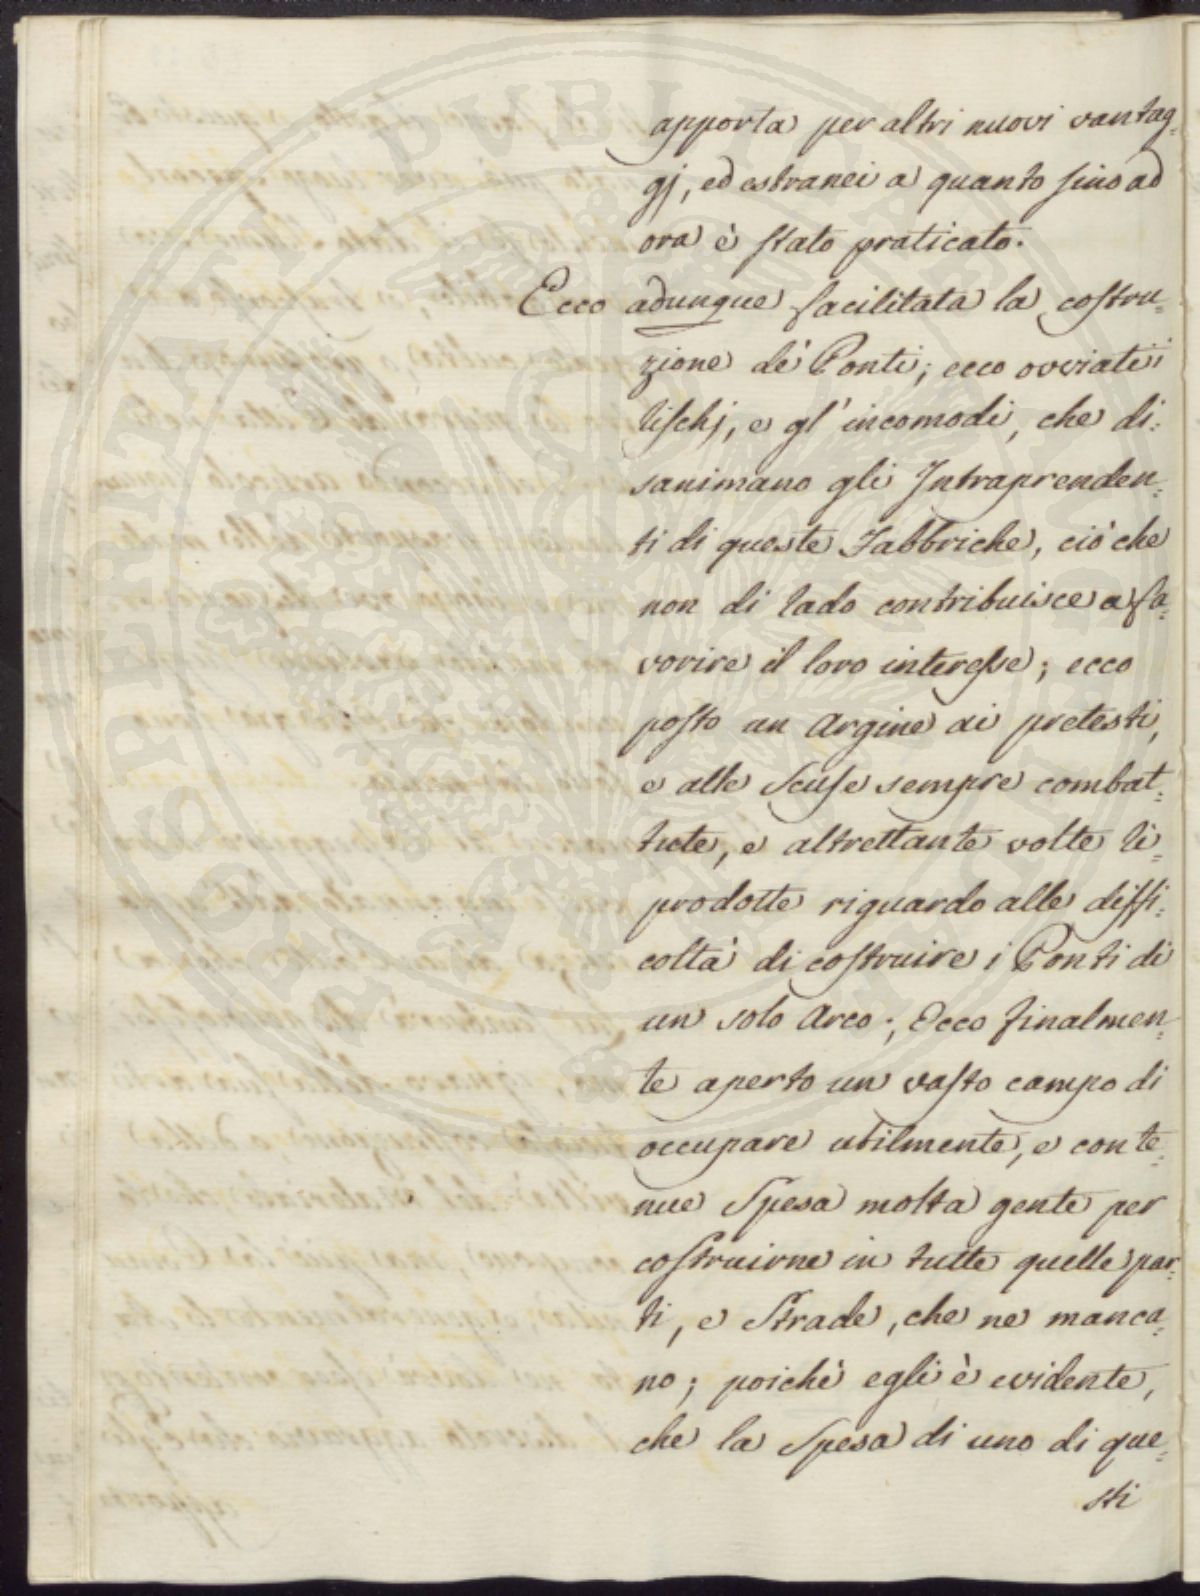 apporta per altri nuovi vantag=
gj, ed estranei a quanto sino ad
ora è stato praticato.
Ecco adunque facilitata la costru=
zione de' Ponti; ecco ovviati i
rischj, e gl' incomodi, che di=
sanimano gli Intraprenden=
ti di queste Fabbriche, ciò che
non di rado contribuisce a fa=
vorire il loro interesse; ecco
posto un Argine ai pretesti,
e alle Scuse sempre combat=
tute, e altrettante volte ri=
prodotte riguardo alle diffi=
coltà di costruire i Ponti di
un solo Arco; Ecco finalmen=
te aperto un vasto campo di
occupare utilmente, e con te=
nue Spesa molta gente per
costruirne in tutte quelle par=
ti, e Strade, che ne manca=
no; poichè egli è evidente,
che la Spesa di uno di que=
sti